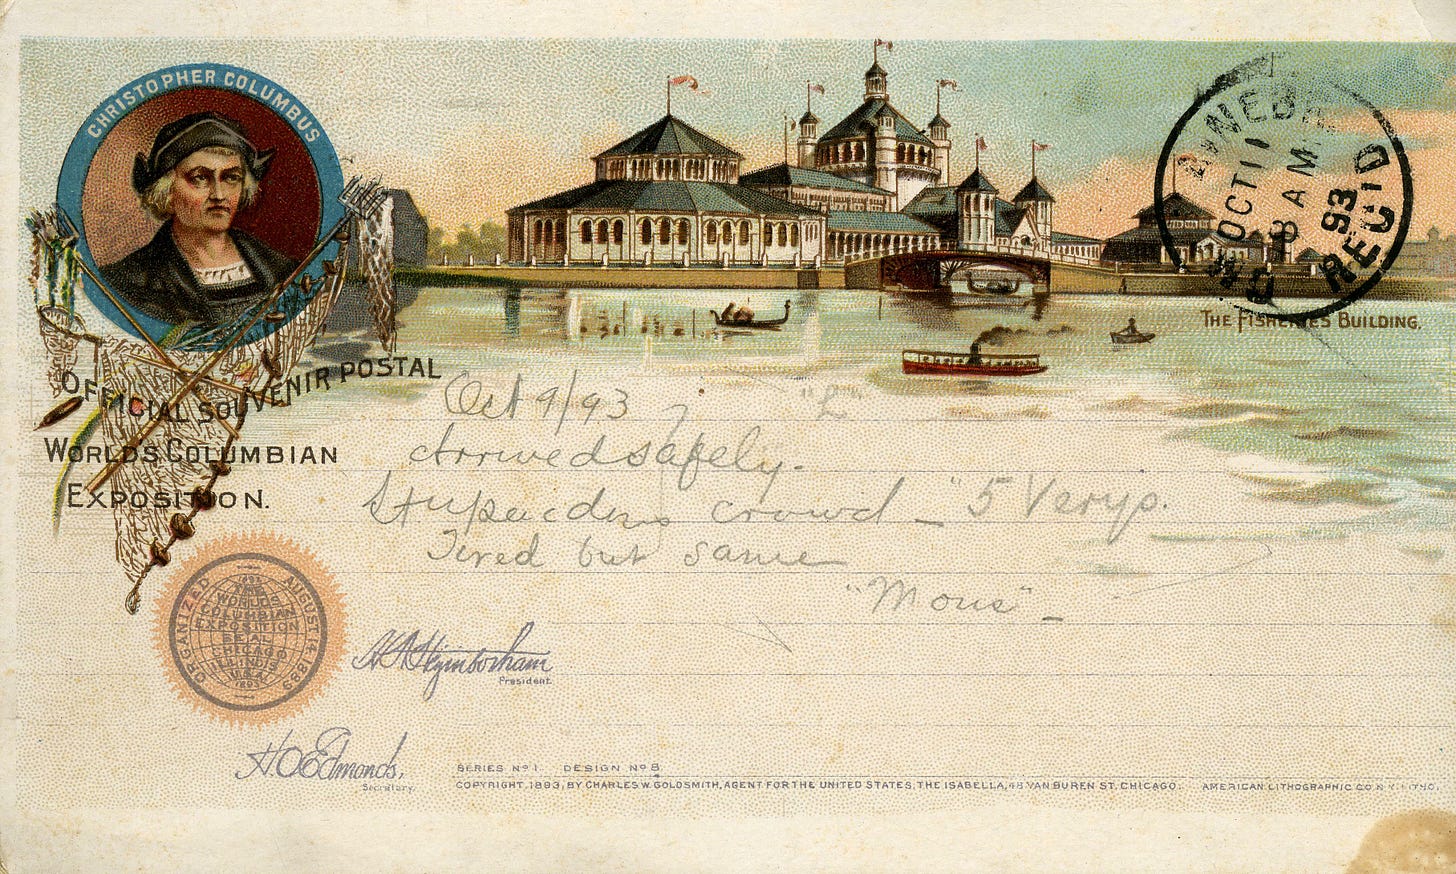 CHRISTOPHER COLUMBUS
OFFICIAL SOUVENIR POSTAL
WORLD'S COLUMBIAN
EXPOSITION.
THE FISHERIES BUILDING.
OCT 11
8 AM
93
REC'D
Oct 9/93
Arrived safely.
Stupendous crowd – "5 Verys.
Tired but same
"Mous" –
ORGANIZED AUGUST 14 1889
THE
WORLD'S
COLUMBIAN
EXPOSITION
SEAL
CHICAGO
ILLINOIS
U.S.A.
1893
H N Higinbotham
President.
H.O. Edmonds,
Secretary.
SERIES No 1. DESIGN No 8.
COPYRIGHT, 1893, BY CHARLES W. GOLDSMITH, AGENT FOR THE UNITED STATES, THE ISABELLA, 48 VAN BUREN ST. CHICAGO. AMERICAN LITHOGRAPHIC CO. N.Y. LITHO.